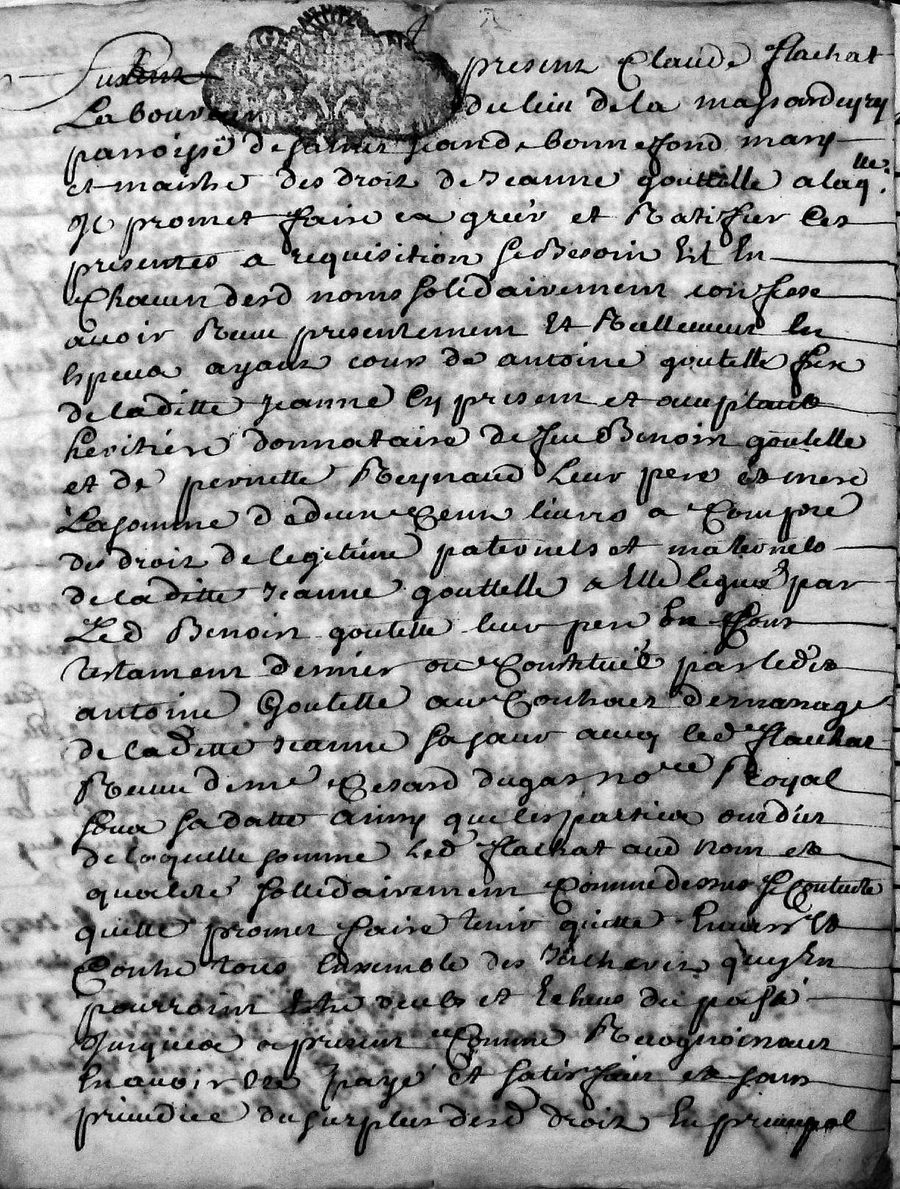 present Claude flachat
Laboureur du lieu de la massardiery
parroisse de saint jean de bonnefond mary
et maistre des droit de jeanne gouttelle a laqlle.
Il promet faire eagréér et Ratiffier Ces
presentes a requisition se Besoin Est En
Chacun desd noms sollidairement confesse
avoir Receu presentement Et Reellement En
Especes ayant cours de antoine goutelle frere
de laditte jeanne Cy present et acceptant
heritier donnataire de feu Benoist goutelle
et de pernette Reynaud leur pere et mere
La somme de Cent livres a Compte
des droit de legitime paternels et maternels
de laditte jeanne gouttelle a Elle legués par
Led Benoist goutelle leur pere En son
testament dernier ou Constitués par ledit
antoine Goutelle au Contract de mariage
de laditte jeanne sa soeur avec led flachat
Receu de me Cesard dugas nore Royal
sous sa datte ainsy que les parties ont dit
de laquelle somme Led flachat aud nom et
qualité sollidairement Comme dessus se Contente
quitte promet faire tenir quitte Envers Et
Contre tous Ensemble des Interests quy En
pourroint Estre deubs et Escheus du passé
jusques a present Comme Recognoissant
En avoir Esté payé Et satisfait et sans
prejudice du surplus desd droit En principal